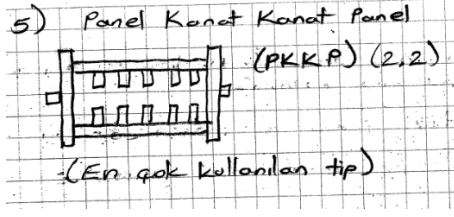 5) Panel Kanat Kanat Panel
(PKKP) (2,2)
(En çok kullanılan tip)